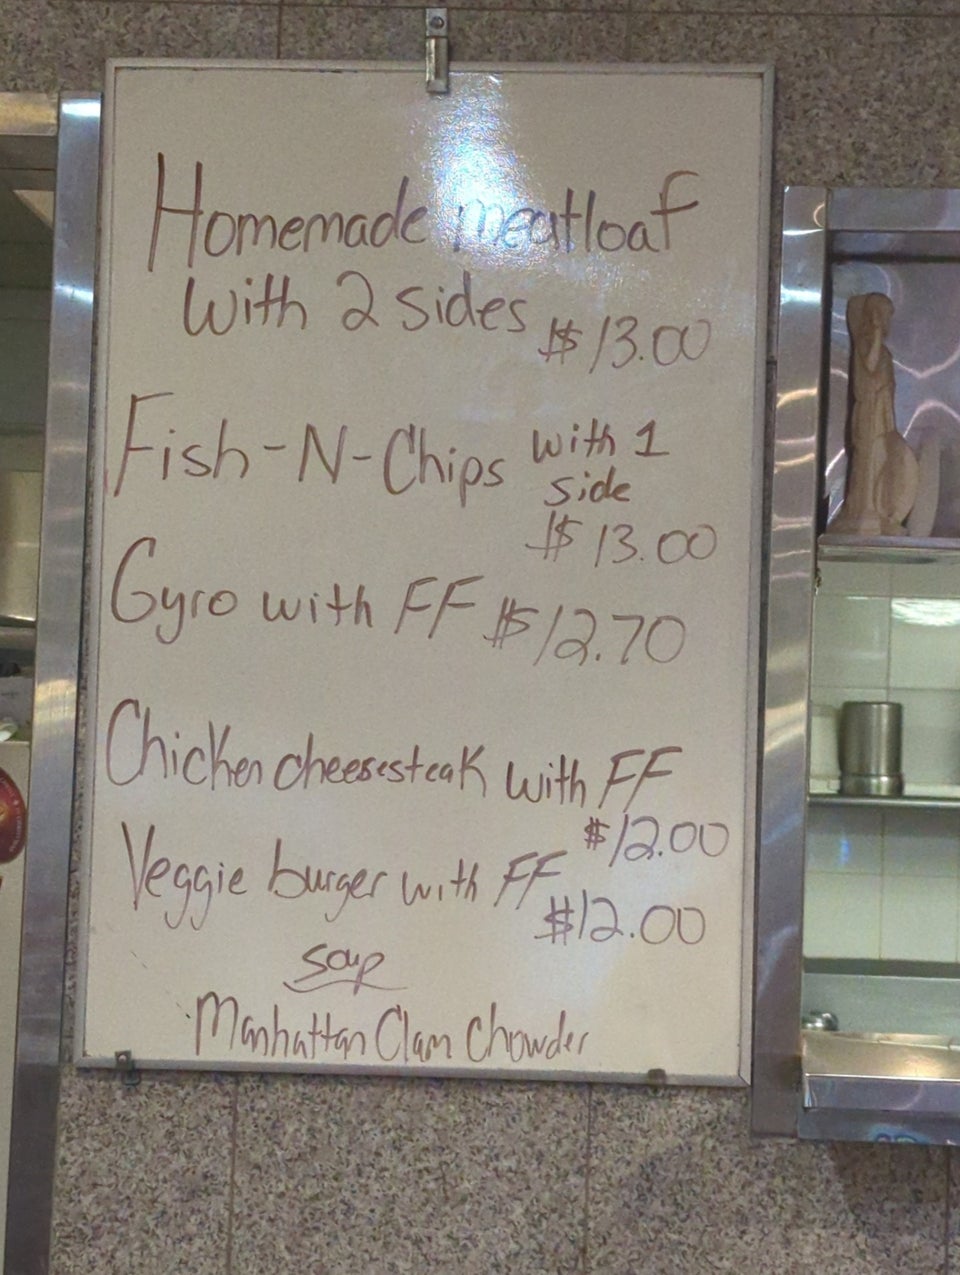 Homemade meatloaf
with 2 sides $13.00
Fish-N-Chips with 1
side
$13.00
Gyro with FF $12.70
Chicken cheesesteak with FF
$12.00
Veggie burger with FF
$12.00
soup
Manhattan Clam Chowder